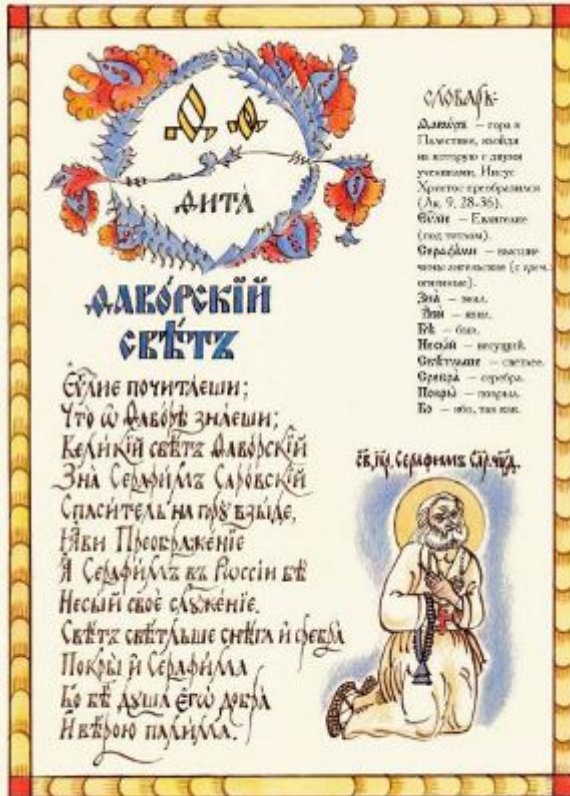 Ѳ, ѳ
ѲИТА̀
ѲАВО́РСКЇЙ
СВѢ́ТЪ
Єѵ҃лие почитаеши;
Что̀ ѡ Ѳаво́рѣ зна́еши;
Вели́кїй свѣ́тъ Ѳаво́рскїй
Зна̀ Серафи́мъ Саро́вскїй
Спаси́тель на го́рꙋ взы́де,
Ꙗ҆вѝ Преѡбраже́нїе
А҆ Серафи́мъ въ Рѡссі́и бѣ̀
Несы́й своѐ слꙋже́нїе.
Свѣ́тъ свѣтлѣ́йше снѣ́га и҆ сребра̀
Покры̀ и҆ Серафи́ма
Бо бѣ̀ дꙋша̀ є҆гѡ̀ добра̀
И҆ вѣ́рою пали́ма.
СЛОВАРЬ:
Ѳаво́ръ — гора в
Палестине, взойдя
на которую с двумя
учениками, Иисус
Христос преобразился
(Лк. 9, 28-36).
Єѵ҃лїе — Евангелие
(под титлом).
Серафи́ми — высшие
чины ангельские (с греч.
огненные).
Зна̀ — знал.
Ꙗ҆вѝ — явил.
Бѣ̀ — был.
Несы́й — несущий.
Свѣтлѣ́йше — светлее.
Сребра̀ — серебра.
Покры̀ — покрыл.
Бо — ибо, так как.
св҃. пр. Серафимъ Сар. чꙋд.